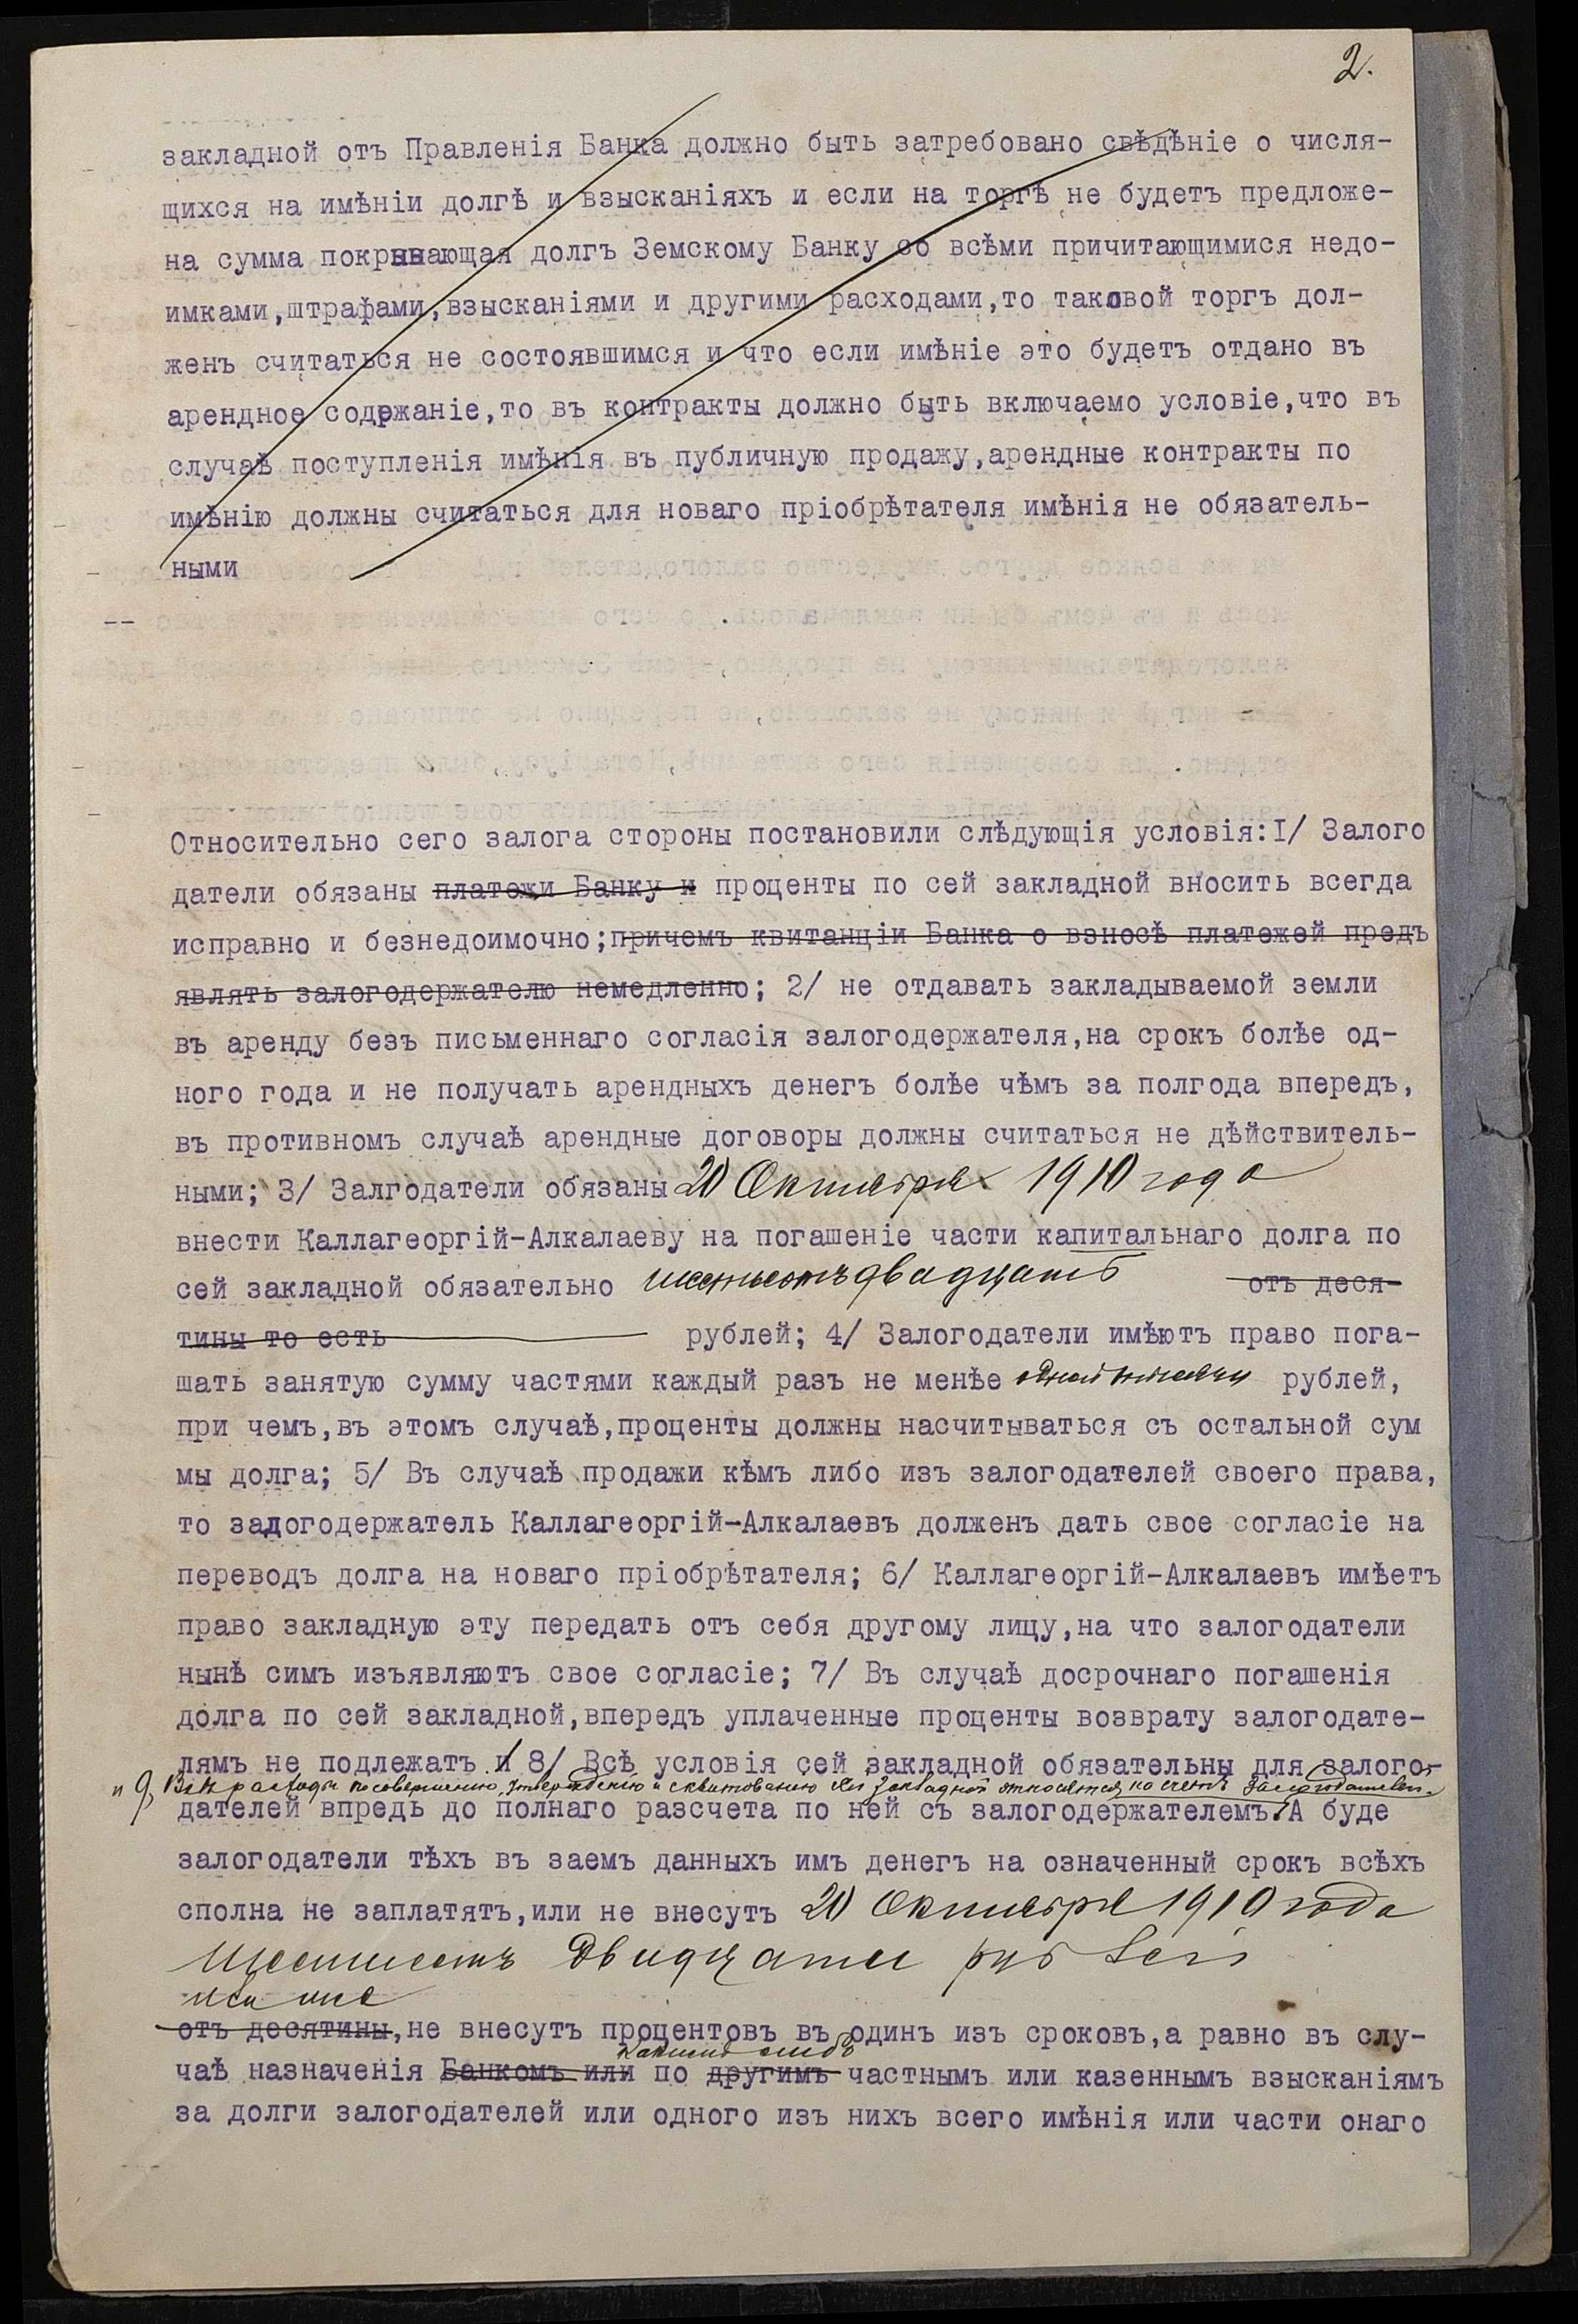 2.
закладной отъ Правленія Банка должно быть затребовано свѣдѣніе о числя-
щихся на имѣніи долгѣ и взысканіяхъ и если на торгѣ не будетъ предложе-
на сумма покрывающая долгъ Земскому Банку со всѣми причитающимися недо-
имками,штрафами,взысканіями и другими расходами,то таковой торгъ дол-
женъ считаться не состоявшимся и что если имѣніе это будетъ отдано въ
арендное содержаніе,то въ контракты должно быть включаемо условіе,что въ
случаѣ поступленія имѣнія въ публичную продажу,арендные контракты по
имѣнію должны считаться для новаго пріобрѣтателя имѣнія не обязатель-
ными
--
Относительно сего залога стороны постановили слѣдующія условія:I/ Залого
датели обязаны платежи Банку и проценты по сей закладной вносить всегда
исправно и безнедоимочно;причемъ квитанціи Банка о взносѣ платежей предъ
являть залогодержателю немедленно; 2/ не отдавать закладываемой земли
въ аренду безъ письменнаго согласія залогодержателя,на срокъ болѣе од-
ного года и не получать арендныхъ денегъ болѣе чѣмъ за полгода впередъ,
въ противномъ случаѣ арендные договоры должны считаться не дѣйствитель-
ными; 3/ Залгодатели обязаны 20 Октября 1910 года
внести Каллагеоргій-Алкалаеву на погашеніе части капитальнаго долга по
сей закладной обязательно шестьсотъ двадцать отъ деся-
тины то есть рублей; 4/ Залогодатели имѣютъ право пога-
шать занятую сумму частями каждый разъ не менѣе одной тысячи рублей,
при чемъ,въ этомъ случаѣ,проценты должны насчитываться съ остальной сум
мы долга; 5/ Въ случаѣ продажи кѣмъ либо изъ залогодателей своего права,
то задогодержатель Каллагеоргій-Алкалаевъ долженъ дать свое согласіе на
переводъ долга на новаго пріобрѣтателя; 6/ Каллагеоргій-Алкалаевъ имѣетъ
право закладную эту передать отъ себя другому лицу,на что залогодатели
нынѣ симъ изъявляютъ свое согласіе; 7/ Въ случаѣ досрочнаго погашенія
долга по сей закладной,впередъ уплаченные проценты возврату залогодате-
лямъ не подлежатъ и 8/ Всѣ условія сей закладной обязательны для залого-
и 9, Всѣ расходы по совершенію, утвержденію и сквитованію сей закладной относятся на счетъ залогодателей.
дателей впредь до полнаго разсчета по ней съ залогодержателемъ. А буде
залогодатели тѣхъ въ заемъ данныхъ имъ денегъ на означенный срокъ всѣхъ
сполна не заплатятъ,или не внесутъ 20 Октября 1910 года
Шестьсотъ двадцати руб
или не
отъ десятины,не внесутъ процентовъ въ одинъ изъ сроковъ,а равно въ слу-
какимъ либо
чаѣ назначенія Банкомъ или по другимъ частнымъ или казеннымъ взысканіямъ
за долги залогодателей или одного изъ нихъ всего имѣнія или части онаго